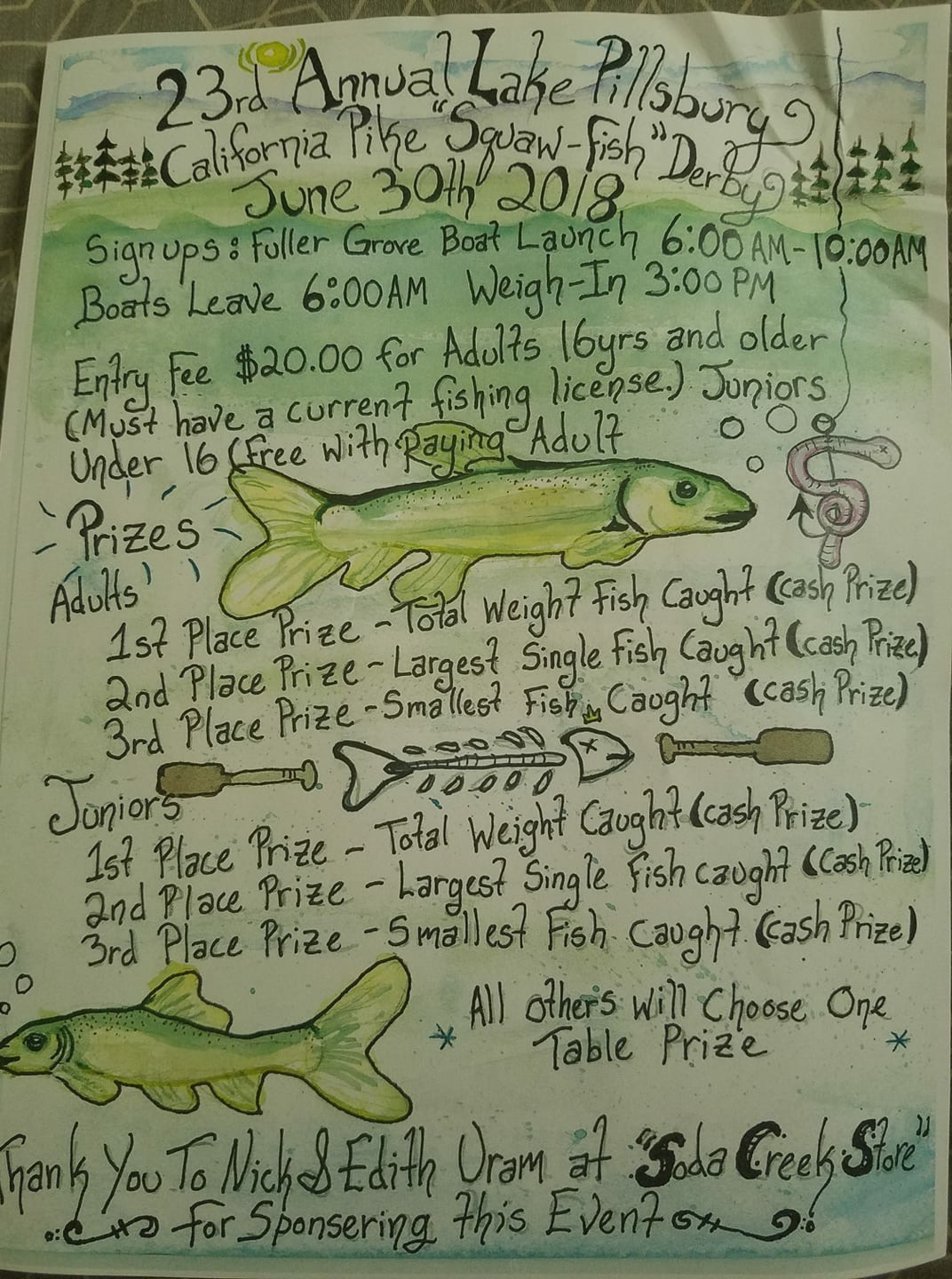 23rd Annual Lake Pillsbury
California Pike "Squaw-Fish" Derby
June 30th 2018
Sign ups: Fuller Grove Boat Launch 6:00AM-10:00AM
Boats Leave 6:00AM Weigh-In 3:00 PM
Entry Fee $20.00 for Adults 16yrs and older
(Must have a current fishing license.) Juniors
Under 16 (Free with Paying Adult
Prizes
Adults'
1st Place Prize - Total Weight Fish Caught (cash Prize)
2nd Place Prize - Largest Single Fish Caught (cash Prize)
3rd Place Prize - Smallest Fish Caught (cash Prize)
Juniors
1st Place Prize - Total Weight Caught (cash Prize)
2nd Place Prize - Largest Single Fish caught (Cash Prize)
3rd Place Prize - Smallest Fish Caught (cash Prize)
All others will Choose One
* Table Prize *
Thank You To Nick & Edith Uram at "Soda Creek Store"
for Sponsering this Event